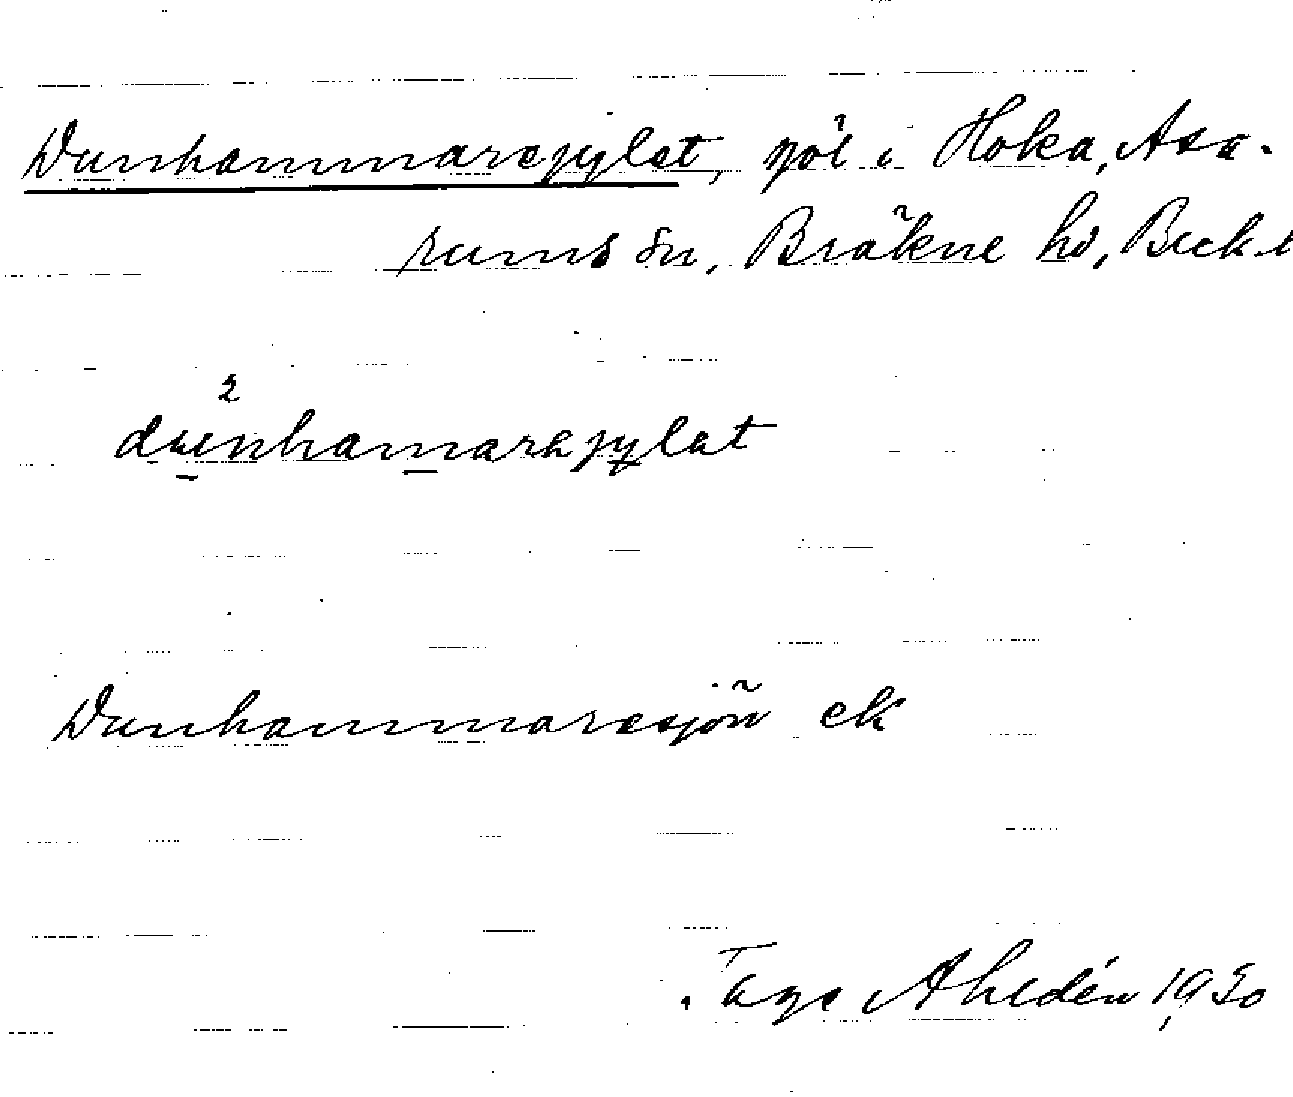 Dunhammarepylet, pöl i Hoka, Asa-
rums sn, Bräkne hd, Blek.
dunhamarapylet
Dunhammaresjön ek
Tage Ahldén 1930